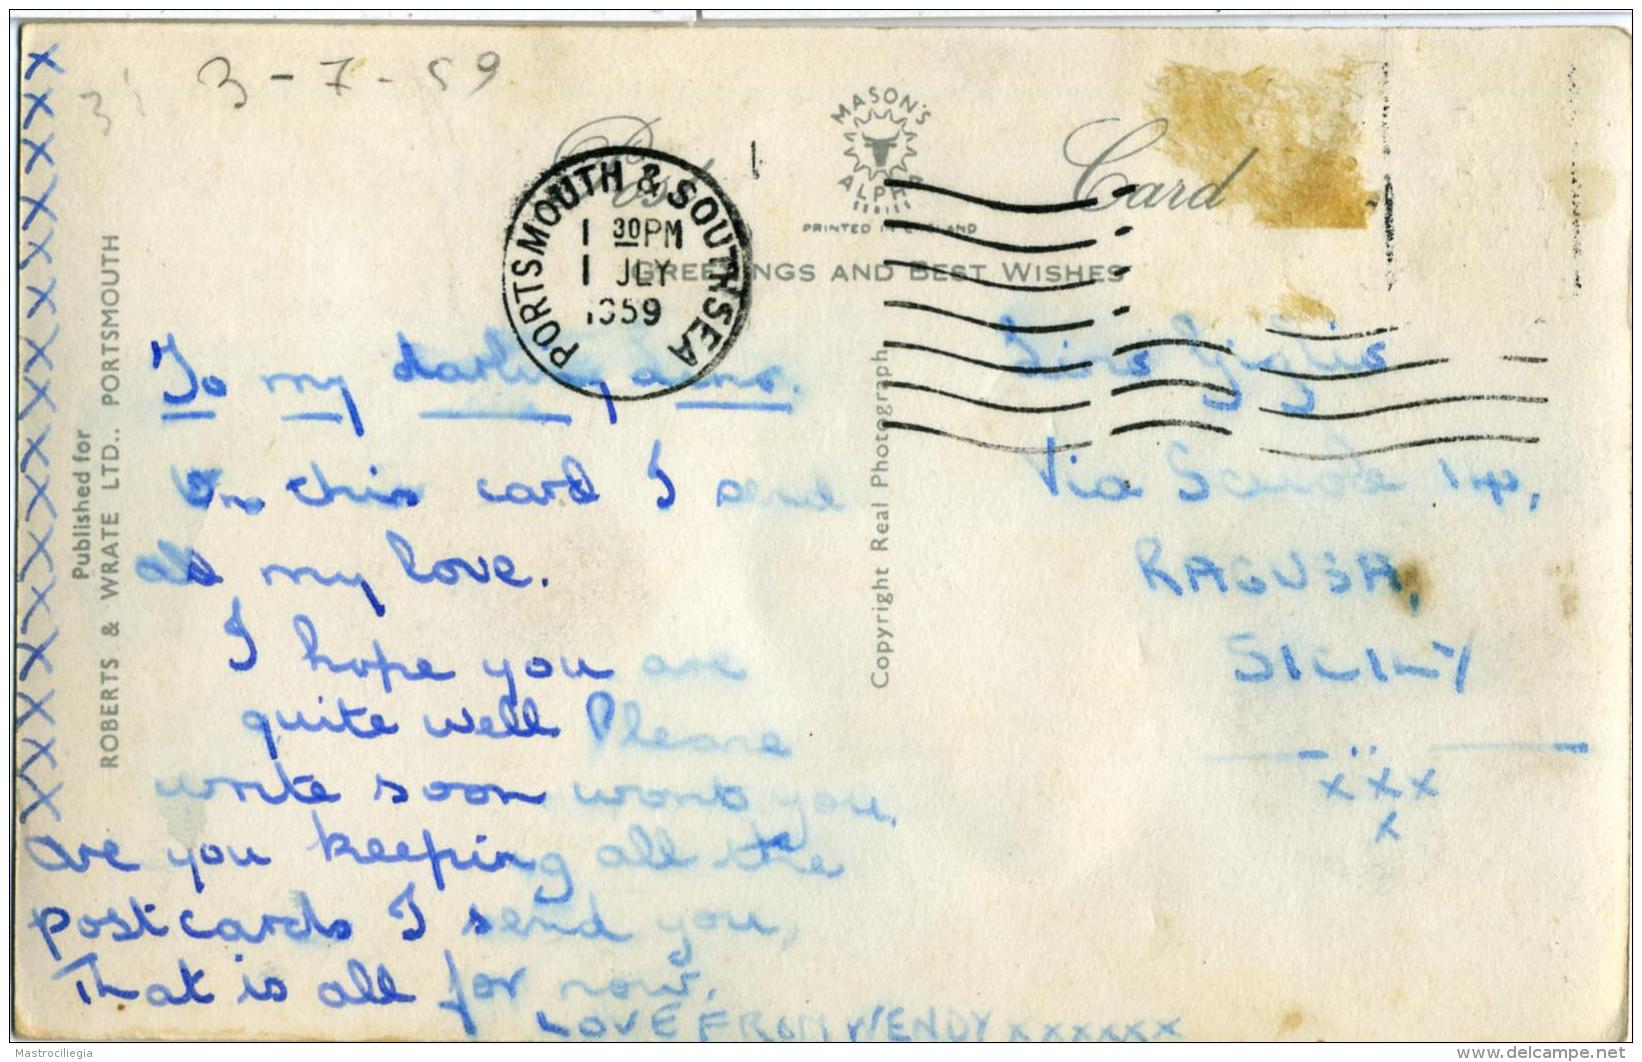 3-7-59
Post Card
MASON'S
ALPHA
SERIES
PRINTED IN ENGLAND
GREETINGS AND BEST WISHES
PORTSMOUTH & SOUTHSEA
1 30PM
1 JLY
1959
Published for
ROBERTS & WRATE LTD., PORTSMOUTH
Copyright Real Photograph
XXXXXXXXXXXXXXXX
To my darling
On this card I send
all my love.
I hope you are
quite well Please
write soon wont you.
Are you keeping all the
postcards I send you,
That is all for now.
LOVE FROM WENDY xxxxxx
Giglio
Via Scuole
RAGUSA,
SICILY
x x x
x
Mastrociliegia
delcampe.net